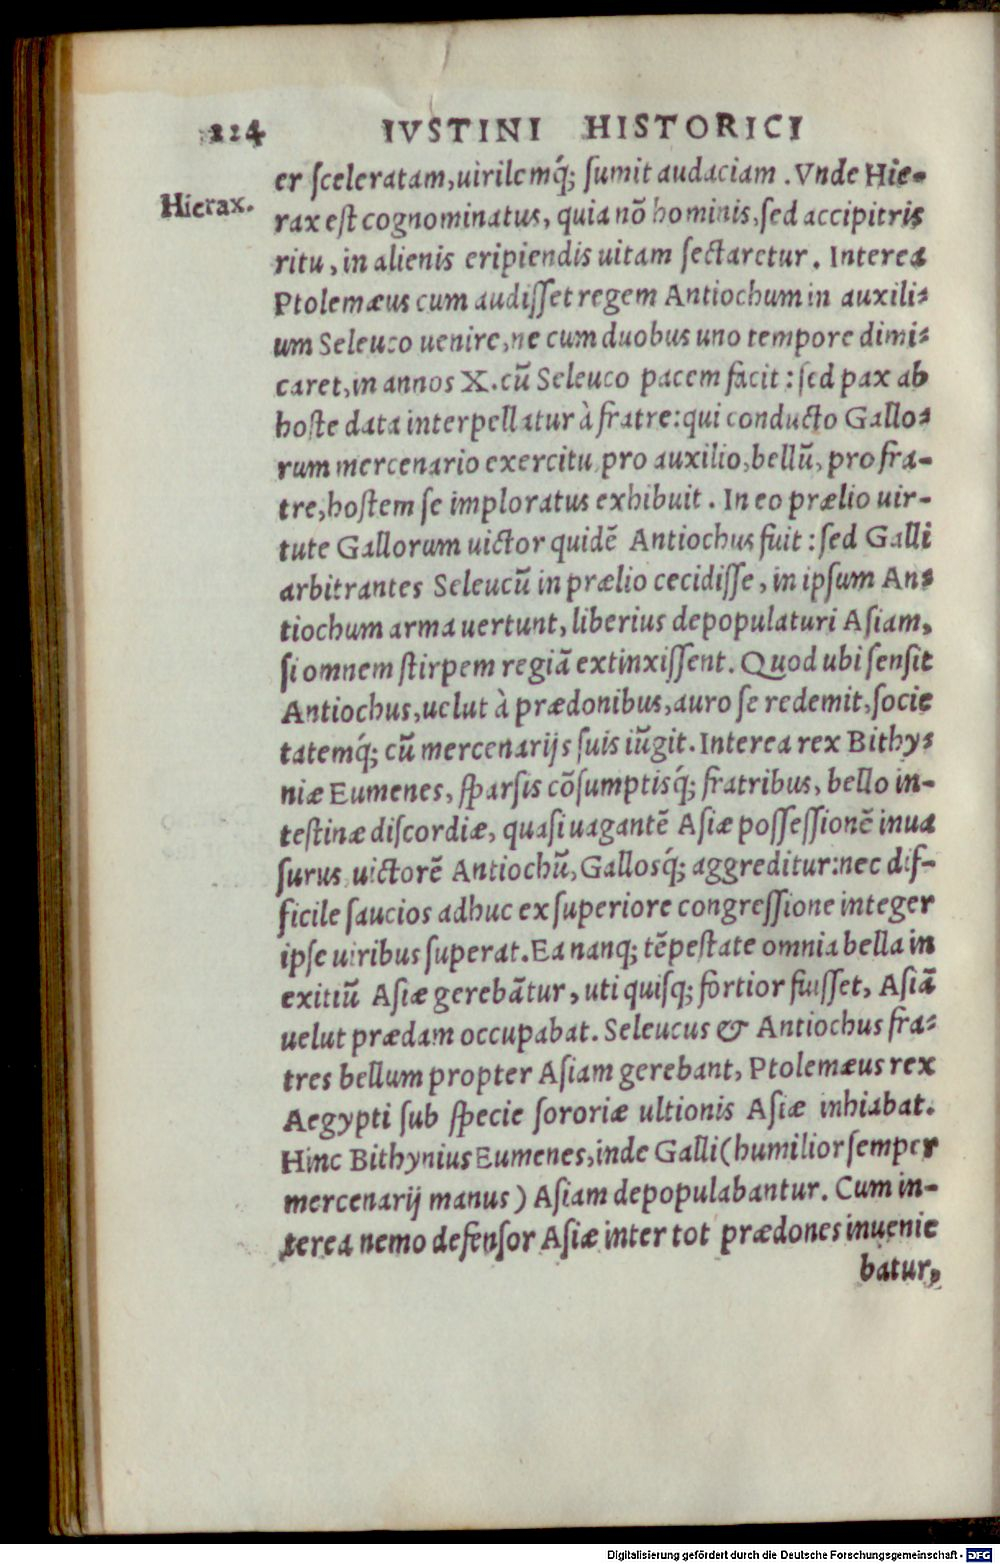 224 IVSTINI HISTORICI
er ſceleratam, uirilemq́; ſumit audaciam. Vnde Hie-
Hierax.
rax eſt cognominatus, quia nõ hominis, ſed accipitris
ritu, in alienis eripiendis uitam ſectaretur. Interea
Ptolemæus cum audiſſet regem Antiochum in auxili-
um Seleuco uenire, ne cum duobus uno tempore dimi-
caret, in annos X. cũ Seleuco pacem facit: ſed pax ab
hoſte data interpellatur à fratre: qui conducto Gallo-
rum mercenario exercitu, pro auxilio, bellũ, pro fra-
tre, hoſtem ſe imploratus exhibuit. In eo prælio uir-
tute Gallorum uictor quidẽ Antiochus fuit: ſed Galli
arbitrantes Seleucũ in prælio cecidiſſe, in ipſum An-
tiochum arma uertunt, liberius depopulaturi Aſiam,
ſi omnem ſtirpem regiã extinxiſſent. Quod ubi ſenſit
Antiochus, uelut à prædonibus, auro ſe redemit, ſocie
tatemq́; cũ mercenarijs ſuis iũgit. Interea rex Bithy-
niæ Eumenes, ſparſis cõſumptisq́; fratribus, bello in-
teſtinæ diſcordiæ, quaſi uagantẽ Aſiæ poſſeſſionẽ inua
ſurus uictorẽ Antiochũ, Gallosq́; aggreditur: nec dif-
ficile ſaucios adhuc ex ſuperiore congreſſione integer
ipſe uiribus ſuperat. Ea nanq; tẽpeſtate omnia bella in
exitiũ Aſiæ gerebãtur, uti quiſq; fortior fuiſſet, Aſiã
uelut prædam occupabat. Seleucus & Antiochus fra-
tres bellum propter Aſiam gerebant, Ptolemæus rex
Aegypti ſub ſpecie ſororiæ ultionis Aſiæ inhiabat.
Hinc Bithynius Eumenes, inde Galli (humilior ſemper
mercenarij manus) Aſiam depopulabantur. Cum in-
terea nemo defenſor Aſiæ inter tot prædones inuenie
batur,
Digitalisierung gefördert durch die Deutsche Forschungsgemeinschaft - DFG